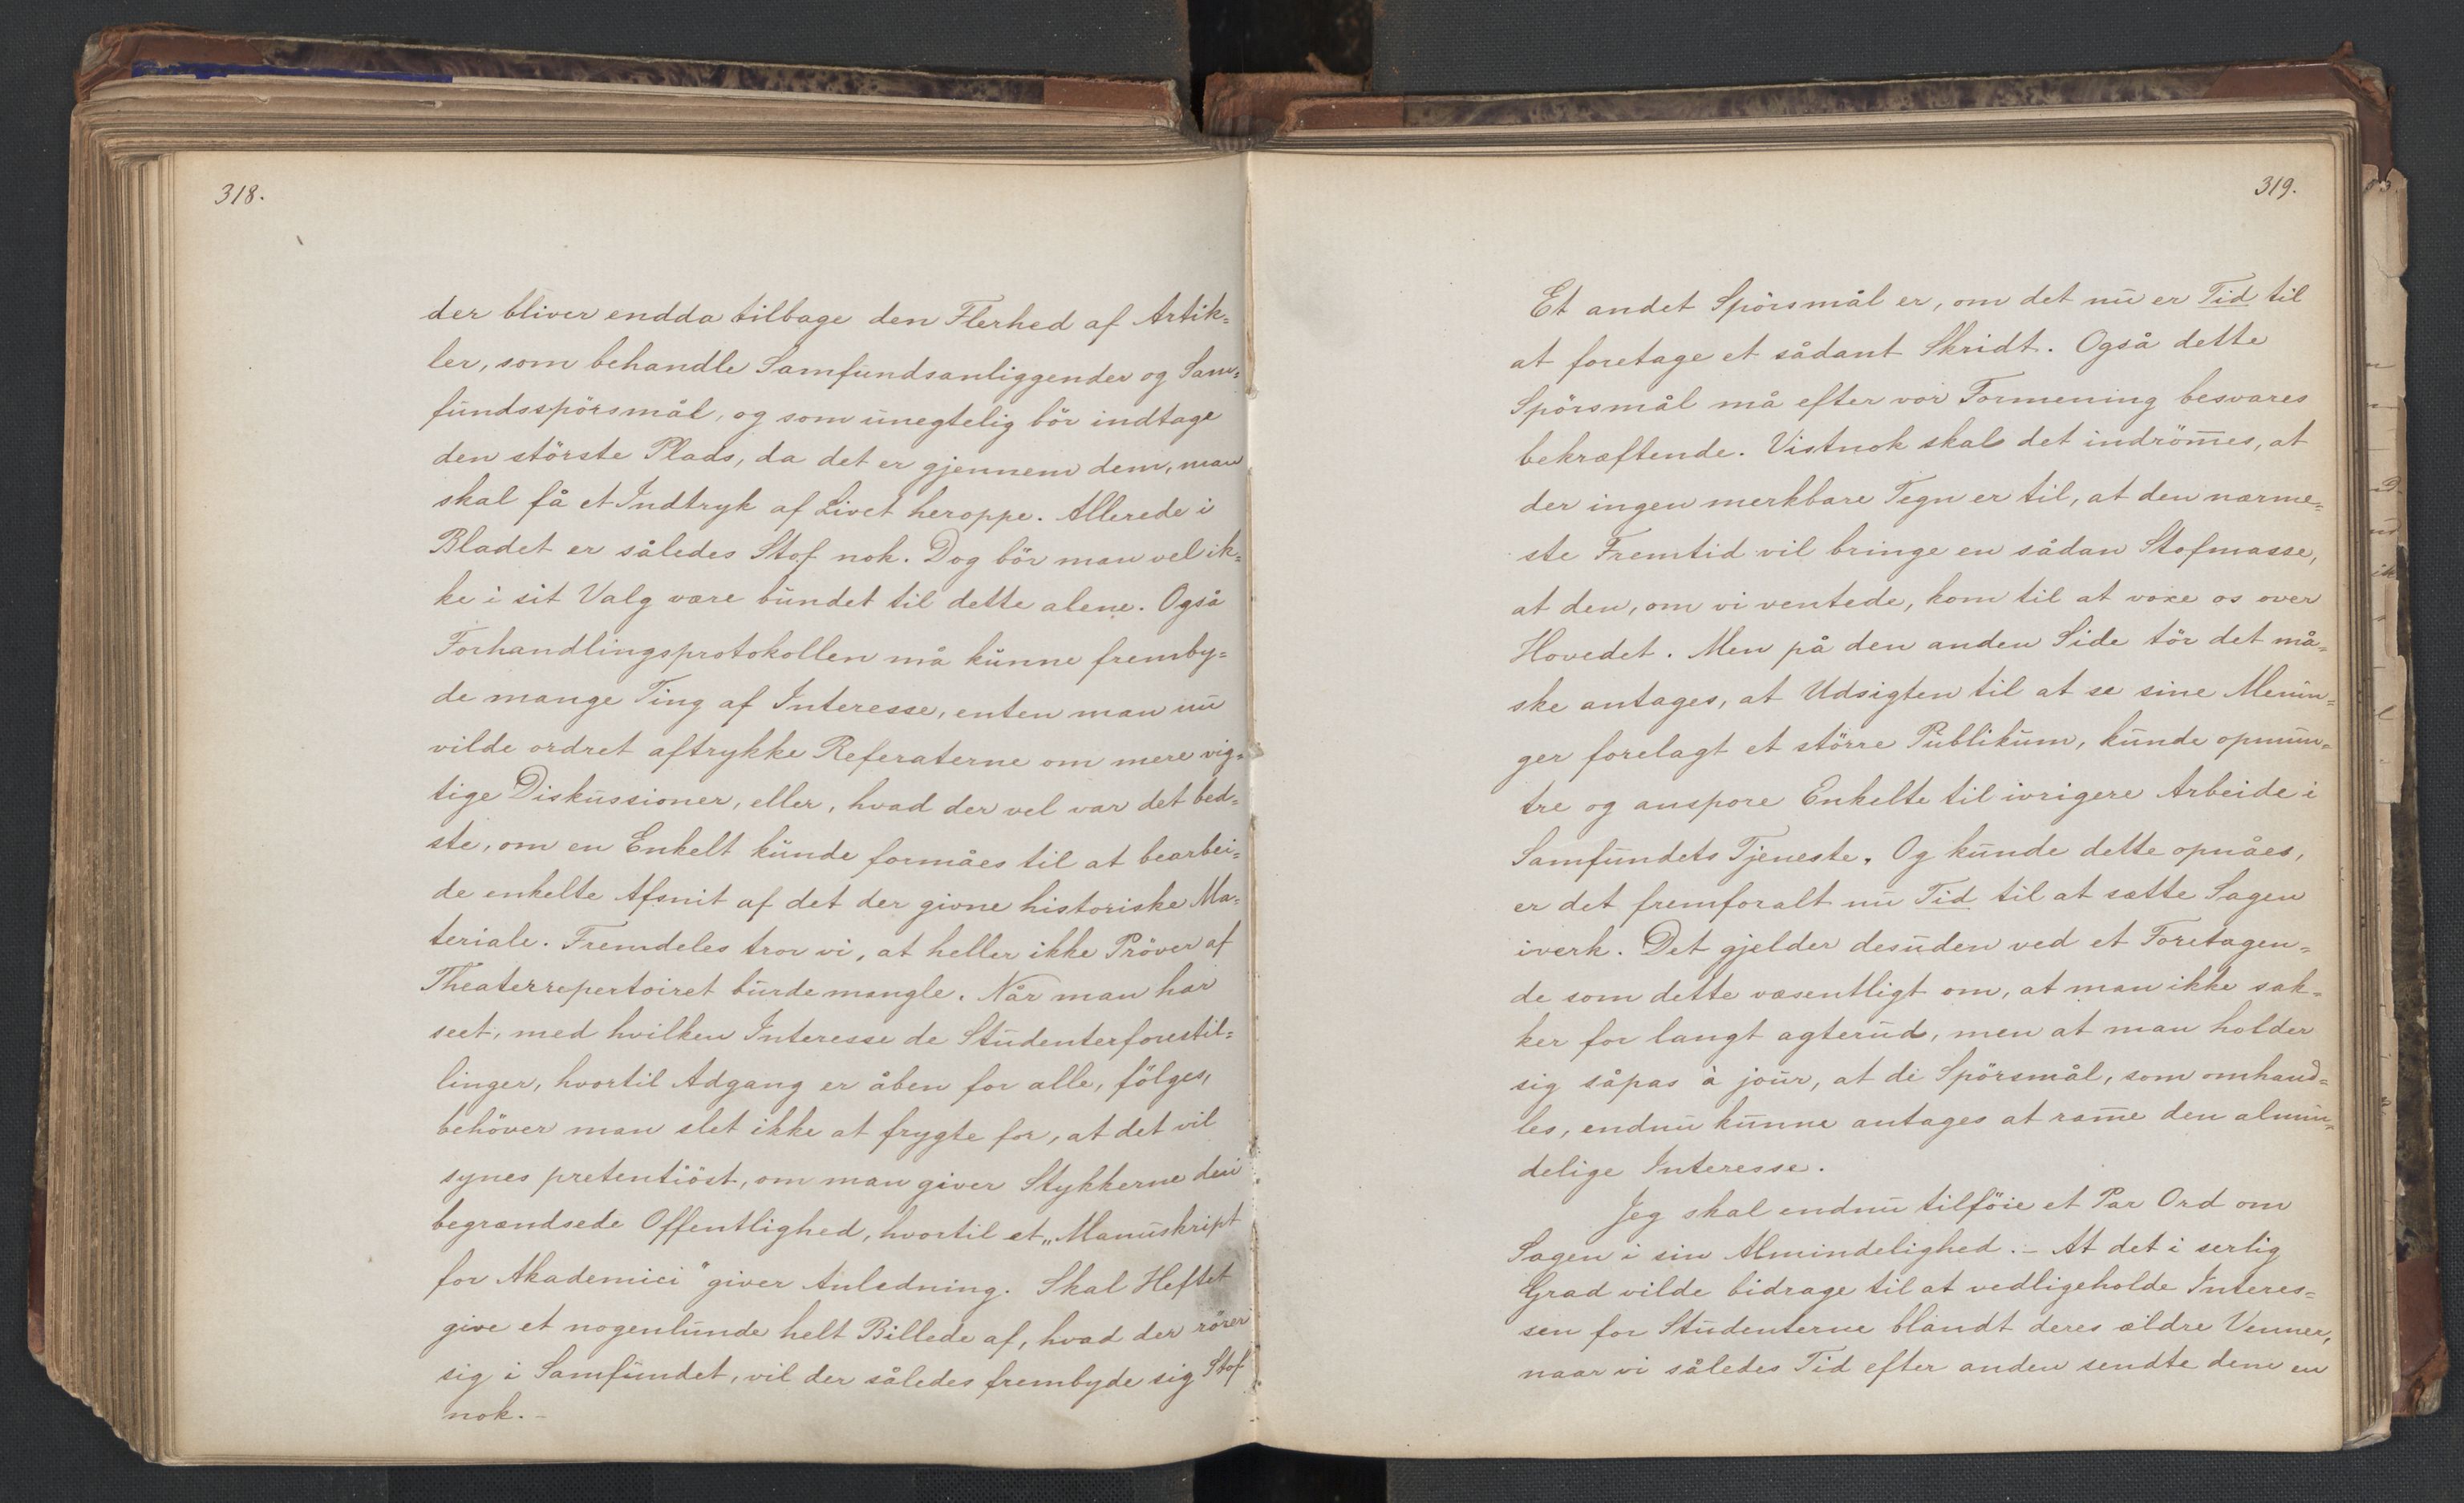 318.
der bliver endda tilbage den Flerhed af Artik=
ler, som behandle Samfundsanliggender og Sam=
fundsspörsmål, og som unegtelig bör indtage
den störste Plads, da det er gjennem dem, man
skal få et Indtryk af Livet heroppe. Allerede i
Bladet er således Stof nok. Dog bör man vel ik=
ke i sit Valg være bundet til dette alene. Også
Forhandlingsprotokollen må kunne fremby=
de mange Ting af Interesse, enten man nu
vilde ordret aftrykke Referaterne om mere vig=
tige Diskussioner, eller, hvad der vel var det bed=
ste, om en Enkelt kunde formåes til at bearbei=
de enkelte Afsnit af det der givne historiske Ma=
teriale. Fremdeles tror vi, at heller ikke Pröver af
Theaterrepertoiret burde mangle. Når man har
seet, med hvilken Interesse de Studenterforestil=
linger, hvortil Adgang er åben for alle, fölges,
behöver man slet ikke at frygte for, at det vil
synes pretentiöst, om man giver Stykkerne den
begrændsede Offentlighed, hvortil et „Manuskript
for Akademici" giver Anledning. Skal Heftet
give et nogenlunde helt Billede af, hvad der rörer
sig i Samfundet, vil der således frembyde sig Stof
nok. -
319.
Et andet Spörsmål er, om det nu er Tid til
at foretage et sådant Skridt. Også dette
Spörsmål må efter vor Formening besvares
bekræftende. Vistnok skal det indröm̄es, at
der ingen merkbare Tegn er til, at den nærme=
ste Fremtid vil bringe en sådan Stofmasse,
at den, om vi ventede, kom til at voxe os over
Hovedet. Men på den anden Side tör det må=
ske antages, at Udsigten til at se sine Menin=
ger forelagt et större Publikum, kunde opmun=
tre og anspore Enkelte til ivrigere Arbeide i
Samfundets Tjeneste. Og kunde dette opnåes,
er det fremforalt nu Tid til at sætte Sagen
iverk. Det gjelder desuden ved et Foretagen=
de som dette væsentligt om, at man ikke sak=
ker for langt agterud, men at man holder
sig såpas à jour, at de Spörsmål, som omhand=
les, endnu kunne antages at ram̄e den almin=
delige Interesse.
Jeg skal endnu tilföie et Par Ord om
Sagen i sin Almindelighed. - At det i serlig
Grad vilde bidrage til at vedligeholde Interes=
sen for Studenterne blandt deres ældre Venner,
naar vi således Tid efter anden sendte dem en